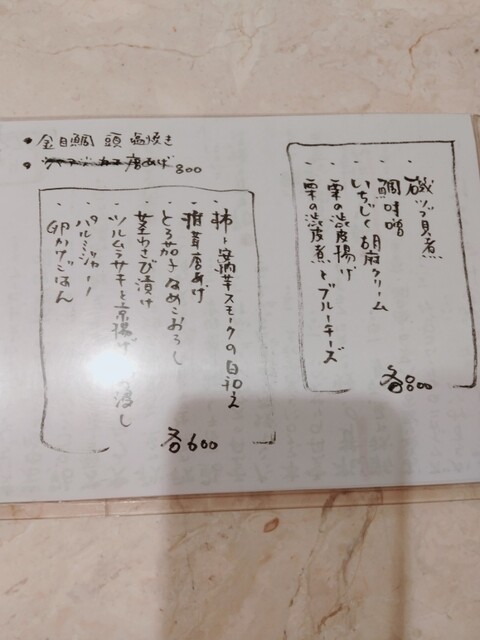 ・金目鯛 頭 塩焼き
・ 唐あげ 800
・磯つぶ貝煮
・鯛味噌
・いちじく胡麻クリーム
・栗の渋皮揚げ
・栗の渋皮煮とブルーチーズ
各800
・柿と安納芋スモークの白和え
・椎茸唐あげ
・とろ茄子なめこおろし
・茎わさび漬け
・ツルムラサキと京揚げ 浸し
・パルミジャーノ
卵かけごはん
各600